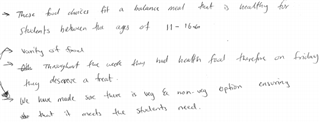 → These food choices fit a balance meal that is healthy for
students between the ages of 11-16
→ Varity of food
→ Throughout the week they had health food therefore on Friday
they deserve a treat.
→ We have made sure there is veg & non-veg option ensuring
that it meets the students need.